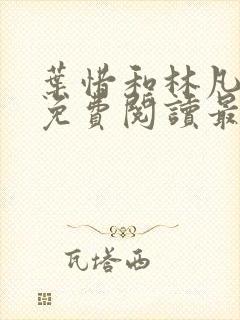 葉惜和林凡
免費閱讀最
瓦塔西